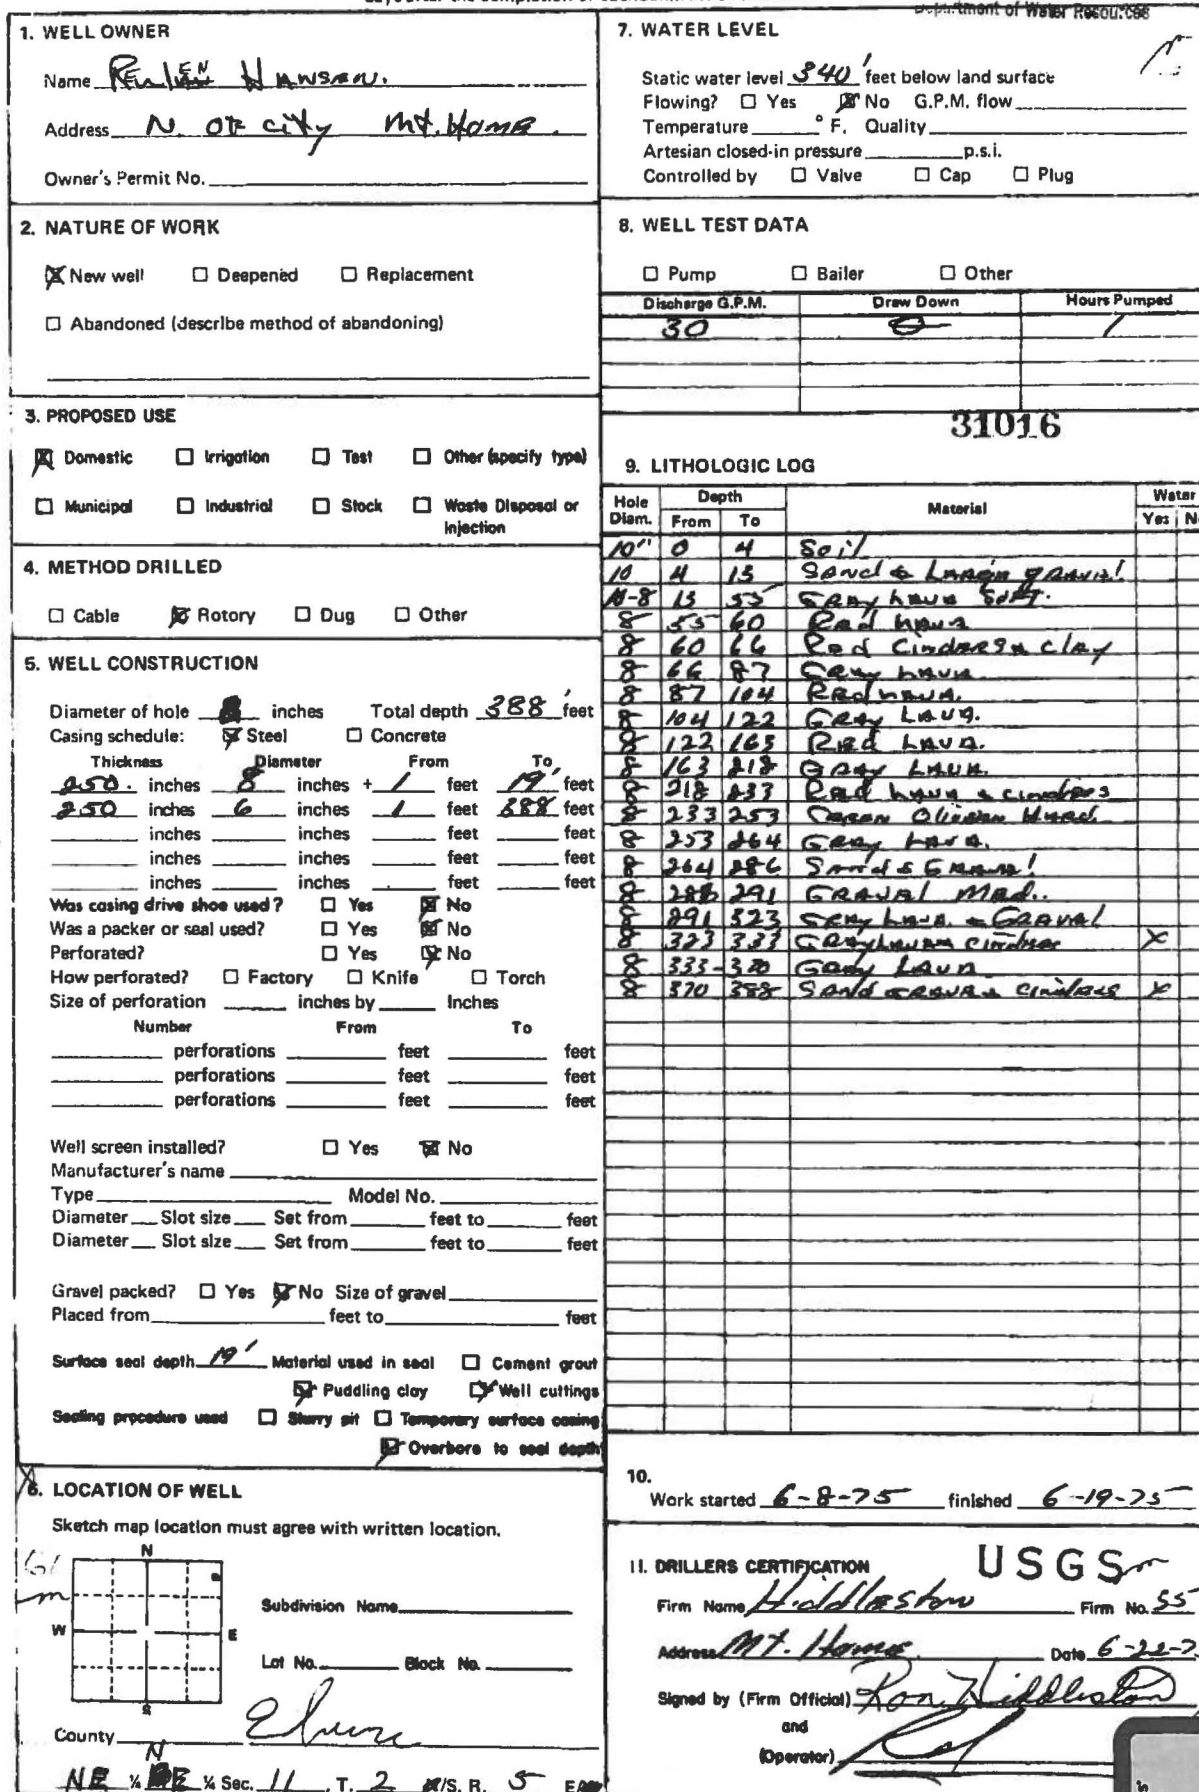 Department of Water Resources
1. WELL OWNER
Name Reuben Hansen.
Address N. OF City Mt. Home.
Owner's Permit No.
2. NATURE OF WORK
New well Deepened Replacement
Abandoned (describe method of abandoning)
3. PROPOSED USE
Domestic Irrigation Test Other (specify type)
Municipal Industrial Stock Waste Disposal or Injection
4. METHOD DRILLED
Cable Rotory Dug Other
5. WELL CONSTRUCTION
Diameter of hole inches Total depth 388' feet
Casing schedule: Steel Concrete
Thickness Diameter From To
.250. inches 8 inches + 1 feet 19' feet
250 inches 6 inches 1 feet 388' feet
inches inches feet feet
inches inches feet feet
inches inches feet feet
Was casing drive shoe used? Yes No
Was a packer or seal used? Yes No
Perforated? Yes No
How perforated? Factory Knife Torch
Size of perforation inches by Inches
Number From To
perforations feet feet
perforations feet feet
perforations feet feet
Well screen installed? Yes No
Manufacturer's name
Type Model No.
Diameter Slot size Set from feet to feet
Diameter Slot size Set from feet to feet
Gravel packed? Yes No Size of gravel
Placed from feet to feet
Surface seal depth 19' Material used in seal Cement grout
Puddling clay Well cuttings
Sealing procedure used Slurry pit Temporary surface casing
Overbore to seal depth
6. LOCATION OF WELL
Sketch map location must agree with written location.
N
W E
S
Subdivision Name
Lot No. Block No.
County Elmore
N
NE ¼ NE ¼ Sec. 11, T. 2 N/S, R. 5 E/W
7. WATER LEVEL
Static water level 340' feet below land surface
Flowing? Yes No G.P.M. flow
Temperature ° F. Quality
Artesian closed-in pressure p.s.i.
Controlled by Valve Cap Plug
8. WELL TEST DATA
Pump Bailer Other
Discharge G.P.M. Draw Down Hours Pumped
30 0 1
31016
9. LITHOLOGIC LOG
Hole Diam. Depth From To Material Water Yes No
10" 0 4 Soil
10 4 15 Sand & Large gravel
10-8 15 55 Gray Lava Soft.
8 55 60 Red Lava
8 60 66 Red Cinders & Clay
8 66 87 Gray Lava
8 87 104 Red Lava.
8 104 122 Gray Lava.
8 122 163 Red Lava.
8 163 218 Gray Lava.
8 218 233 Red Lava & cinders
8 233 253 Green Hard
8 253 264 Gray Lava.
8 264 286 Sand & Gravel
8 286 291 Gravel Med..
8 291 323 Gray Lava & Gravel
8 323 333 Gray Lava & cinders X
8 333-370 Gray Lava
8 370 388 Sand gravel & Cinders X
10.
Work started 6-8-75 finished 6-19-75
11. DRILLERS CERTIFICATION USGS
Firm Name Hiddleston Firm No. 55
Address Mt. Home Date 6-22-7
Signed by (Firm Official) Ron Hiddleston
and
(Operator)